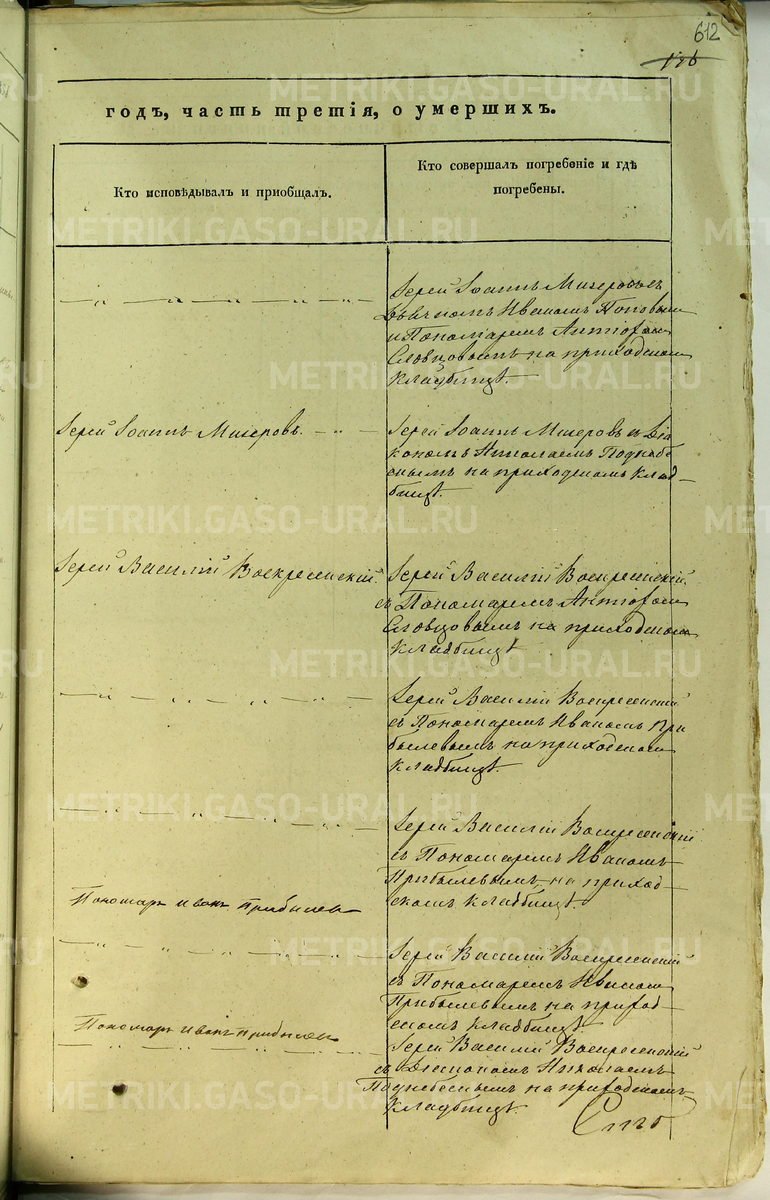 612
годъ, часть третія, о умершихъ.
Кто исповѣдывалъ и приобщалъ.
Кто совершалъ погребеніе и гдѣ
погребены.
METRIKI.GASO-URAL.RU
Іерей Іоаннъ Мизеровъ съ
Дьячкомъ Иваномъ Поповымъ
и Пономаремъ
Словцовымъ на приходскомъ
кладбищѣ.
Іерей Іоаннъ Мизеровъ.
Іерей Іоаннъ Мизеровъ съ Діа
кономъ Николаемъ Поднебе
снымъ на приходскомъ клад-
бищѣ.
Іерей Василій Воскресенскій.
Іерей Василій Воскресенскій
съ Пономаремъ
Словцовымъ на приходскомъ
кладбищѣ
Іерей Василій Воскресенскій
съ Пономаремъ Иваномъ При
былевымъ на приходскомъ
кладбищѣ.
Іерей Василій Воскресенскій
съ Пономаремъ Иваномъ
Прибылевымъ на приход-
скомъ кладбищѣ.
Пономарь Иванъ Прибылев
Іерей Василій Воскресенскій
съ Пономаремъ Иваномъ
Прибылевымъ на приход-
скомъ кладбищѣ
Пономарь Иванъ Прибылев
Іерей Василій Воскресенскій
съ Діакономъ Николаемъ
Поднебеснымъ на приходскомъ
кладбищѣ